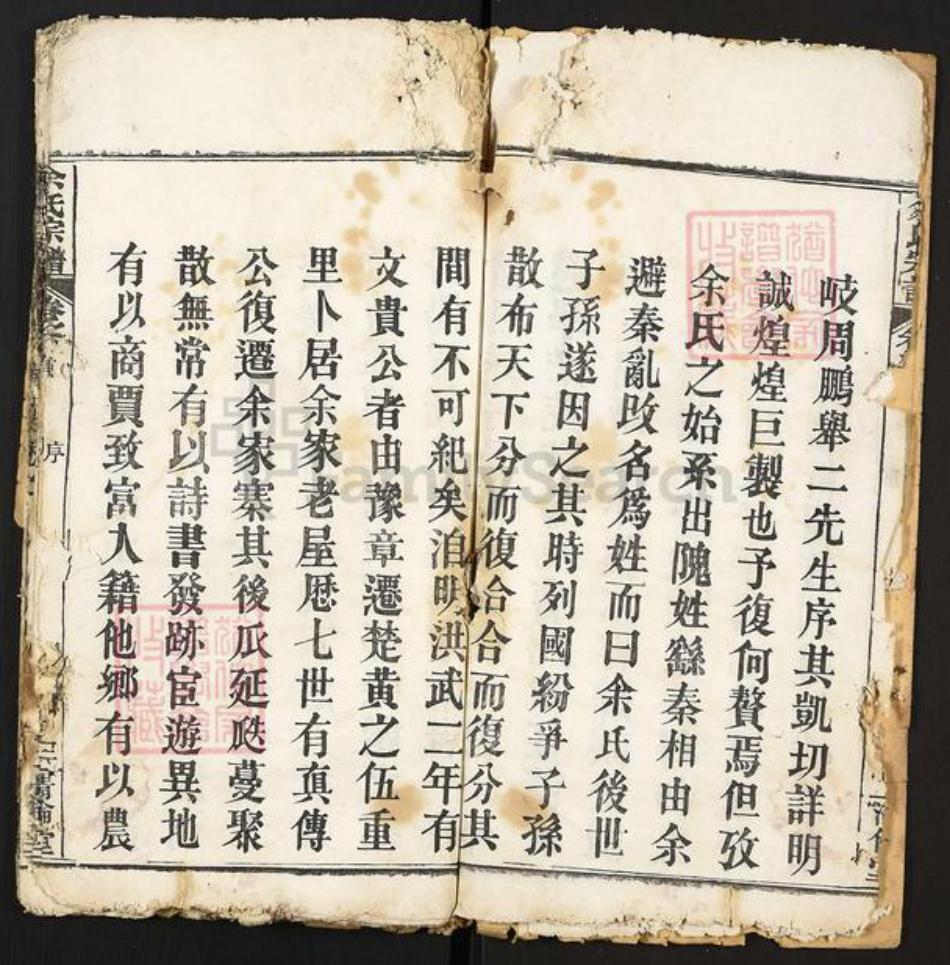 岐周鵬舉二先生序其凱切詳明
誠煌煌巨製也予復何贅焉但攷
余氏之始系出隗姓繇秦相由余
避秦亂改名爲姓而曰余氏後世
子孫遂因之其時列國紛爭子孫
散布天下分而復合合而復分其
間有不可紀矣洎明洪武二年有
文貴公者由豫章遷楚黄之伍重
里卜居余家老屋歷七世有真傳
公復遷余家寨其後瓜延瓞蔓聚
散無常有以詩書發跡宦遊異地
有以商賈致富入籍他鄉有以農
余氏宗譜
卷之
序
FamilySearch